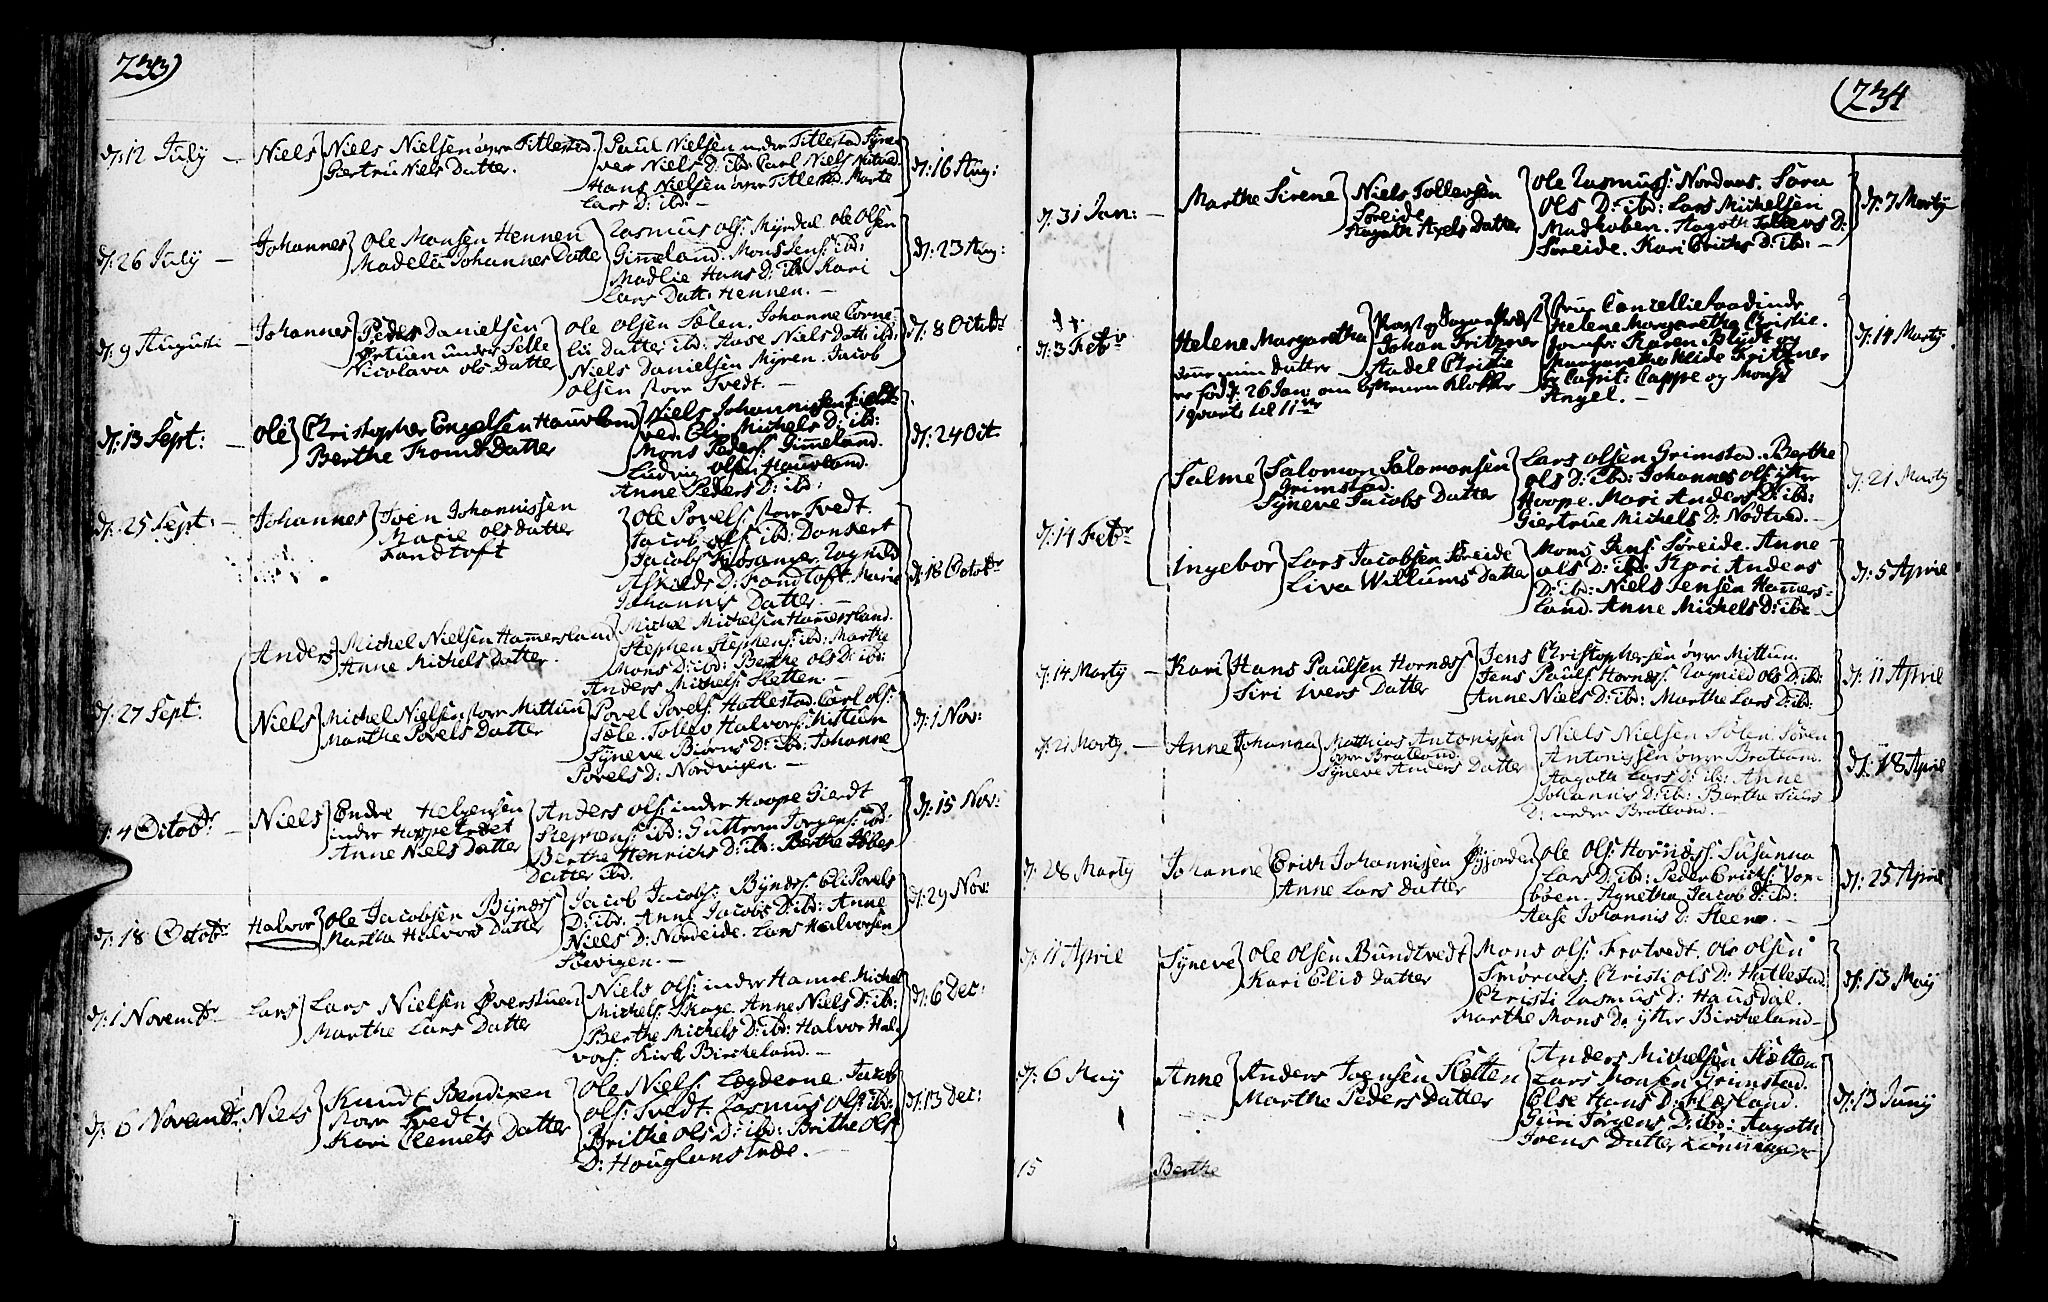 233)
d: 12 July — Niels
Niels Nielsen øvre Titlestad
Giertru Niels Datter.
Paul Nielsen nedre Titlestad Syne-
ver Niels D: ibd: Carl Niels
Hans Nielsen øvre Titlestad. Marte
Lars D: ibd: —
d: 16 Aug:
d: 26 July — Johannes
Ole Monsen Hennen
Madela Johannes Datter
Rasmus Ols: Myrdal. Ole Olsen
Gimeland. Mons Jens: ibd:
Madlie Hans D: ibd: Kari
Lars Datt: Hennen. —
d: 23 Aug:
d: 9 Augusti — Johannes
Peder Danielsen
under Selle
Nicolava Ols Datter
Ole Olsen Sælen. Johanne Corne-
lii Datter ibd: Aase Niels Datt: ibd:
Niels Danielsen Myren. Jacob
Olsen store Tvedt. —
d: 8 Octobr
d: 13 Sept: — Ole
Christopher Engelsen Hauvland
Berthe Tromds Datter
Niels Johannissen Fieldt-
ved. Eli Michels D: ibd:
Mons Peders: Gimeland.
Ludvig Olsen Hauvland.
Anne Peders D: ibd:
d: 24 Oct.
d: 25 Sept: — Johannes
Iven Johannissen
Marie Ols Datter
Fandtoft
Ole Povels: store Tvedt.
Jacob Ols: ibd: Donkert
Jacobs: Fiøsanger Ragnild
Askilds D: Fandtoft. Marie
Johannis Datter. —
d: 18 Octobr
d: 27 Sept.
Anders
Michel Nielsen Hamersland
Anne Michels Datter.
Michel Michelsen Hamersland.
Stephen Stephens: ibd: Marthe
Mons D: ibd: Berthe Ols D: ibd:
Anders Michels: Sletten —
Niels
Michel Nielsen store Mittun
Marthe Povels Datter
Povel Povels: Hatlestad. Carl Ols:
Sæle. Tollev Halvors: Mittun
Syneve Biørns D: ibd: Johanne
Povels D: Nordvigen. —
d: 1 Nov:
d: 4 Octobr — Niels
Endre Helgesen
indre Hoppe
Anne Niels Datter
Anders Ols: indre Hoope Gierdt
Stephens: ibd: Guttorm Jørgens: ibd:
Berthe Henrichs D: ibd: Berthe Ebbes
Datter ibd.
d: 15 Nov:
d: 18 Octobr Halvor
Ole Jacobsen Byndes
Martha Halvors Datter
Jacob Jacobs: Byndes: Eli Povels
D: ibd: Anne Jacobs D: ibd: Anne
Niels D: Nordeide. Lars Halvorsen
Søevigen. —
d: 29 Nov:
d: 1 Novembr — Lars
Lars Nielsen Øverstuen
Marthe Lars Datter
Niels Ols: indre Hamre. Michel
Michels: Skage. Anne Niels D: ibd:
Berthe Michels D: ibd: Halvor Hal-
vors: Kirk Bircheland. —
d: 6 Dec:
d: 6 Novembr: Niels
Knudt Bendixen
store Tvedt.
Kari Clemets Datter
Ole Niels: Lægderne. Jacob
Ols: Tvedt. Rasmus Ols: ibd:
Brithe Ols D: ibd: Brithe Ols
D: Houglanstræe. —
d: 13 Dec:
(234
d: 31 Jan: — Marthe Sirene
Niels Tollevsen
Søreide
Aagoth Axels Datter
Ole Rasmuss: Nordaas. Sara
Ols D: ibd: Lars Michelsen
Madhoben. Aagoth Tollevs D:
Søreide. Kari Erichs D: ibd: —
d: 7 Marty
d: 3 Febr Helene Margaretha
denne min datter
er fød d: 26 Jan om Klokken
1 qvart til 11
Provst og Sogne Præst
Johan Fritzner
Aadel Christie
Frue Cancellieraadinde
Helene Margaretha Christie.
Jomfr: Karen Blydt og
Margaretha Fritzner
Hr Capit: Cappe og Monsr
Angel. —
d: 14 Marty
d: 14 Febr
Salme
Salomon Salomonsen
Grimstad.
Syneve Jacobs Datter
Lars Olsen Grimstad. Berthe
Ols D: ibd: Johannes Ols: ytter
Hoope. Mari Anders D: ibd:
Giertrue Michels D: Nodtved. —
d: 21 Marty
Ingebor
Lars Jacobsen Søreide
Liva Willums Datter
Mons Jens: Søreide. Anne
Ols D: ibd: Kari Anders
D: ibd: Niels Jensen Hamers-
land. Anne Michels D: ibd —
d: 5 April
d: 14 Marty — Kari
Hans Paulsen Hornæss
Siri Ivers Datter
Jens Christophersen øvre Mittun.
Jens Pauls: Hornæss. Ragnild Ols D: ibd:
Anne Niels D: ibd: Marthe Lars D: ibd:
d: 11 April
d: 21 Marty. — Anne Johanna
Mathias Antonissen
øvre Bratland.
Syneve Anders Datter
Niels Nielsen Sølen Søren
Antonissen øvre Bratland.
Aagoth Lars D: ibd: Anne
Johannis D: ibd: Berthe Siurs
D: nedre Bratland. —
d: 18 April
d: 28 Marty Johanne
Erich Johannissen
Anne Lars Datter
Ole Ols: Hornæss. Susanna
Lars D: ibd: Peder Erichs: Vol-
bøen. Agnetha Jacob D: ibd:
Aase Johannis D: Steene. —
d: 25 April
d: 11 April Syneve
Ole Olsen Bundtvedt
Kari Elis Datter
Mons Ols: Frotvedt. Ole Olsen
Smøraas. Christi Ols D: Hatlestad.
Christi Rasmus D: Hausdal.
Marthe Mons D: ytter Bircheland —
d: 13 Maij
d: 6 Maij Anne
Anders Ivensen Sletten
Marthe Peders Datter
Anders Michelsen Sletten
Lars Monsen Grimstad.
Else Hans D: Flæsland.
Guri Jørgens D: ibd: Aagoth
Ivens Datter Lønninger
d: 13 Junij
15 Berthe